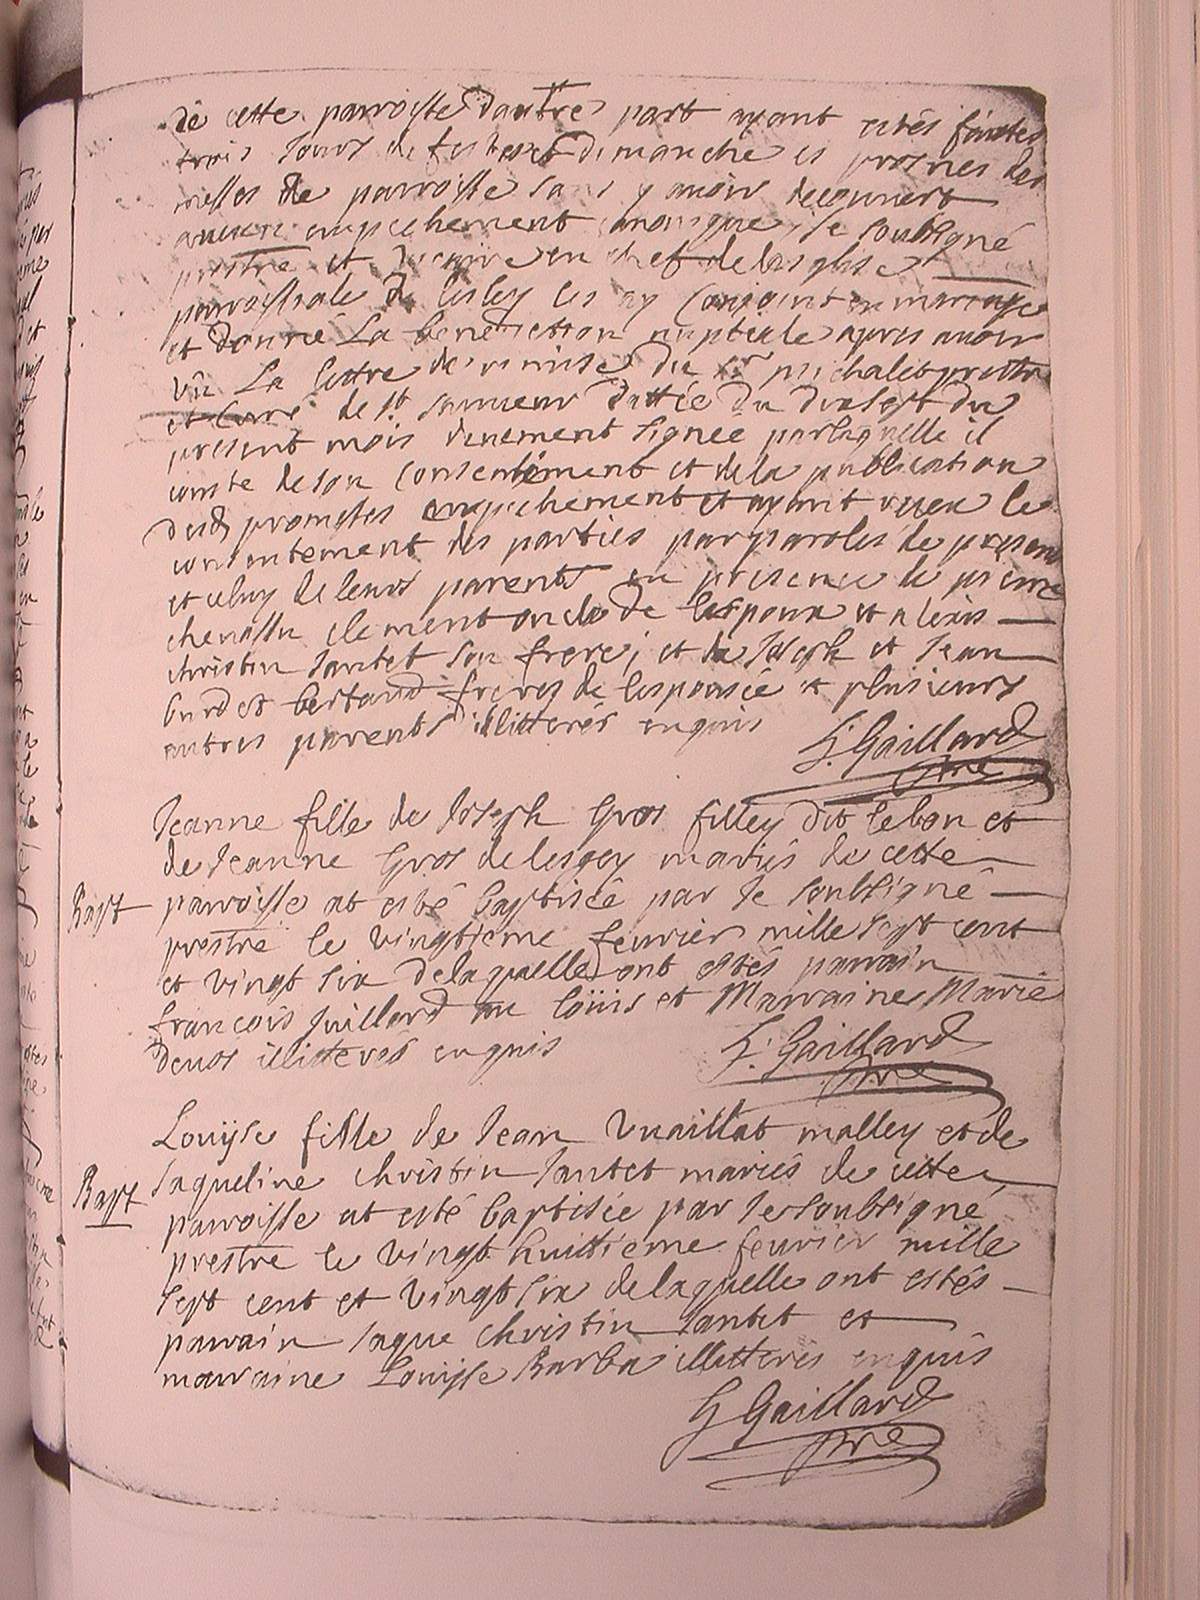 de cette parroisse d'autre part ayant estés faites
trois jours de festes et dimanche es prosnes des
messes de parroisse sans y avoir decouvert
aucun empechement canonique, je soubsigné
prestre et vicaire en chef de leglise
parroissiale de les ay conjoint en mariage
et donné La benediction nuptiale apres avoir
vû La lettre de remise du Sr michalet prestre
et Curé de St sauveur dattée du dixsept du
present mois duement signée par laquelle il
conste de son consentement et de la publication
desd promesses empechement et ayant receu le
consentement des parties par paroles de present
et celuy de leurs parents en presence de pierre
clement oncle de lespoux et alexis
christin tantet son frere, et de Joseph et Jean
burdet bertand freres de lespousée et plusieurs
autres parents illitterés enquis
G. Gaillard
ptre
Jeanne fille de Joseph Gros filley dit lebon et
de Jeanne Gros mariés de cette
Bapt parroisse at esté baptisée par le soubsigné
prestre le vingtieme fevrier mille sept cent
et vingt six de laquelle ont estés parrain
francois Juillard au loüis et Marraine Marie
illitterés enquis
G. Gaillard
ptre
Louyse fille de Jean Vuaillat malley et de
Jaqueline christin tantet mariés de cette
Bapt parroisse at esté baptisée par le soubsigné
prestre le vingt huittieme fevrier mille
sept cent et vingt six de laquelle ont estés
parrain Jaque christin tantet et
marraine Louysse Barba illitterés enquis
G Gaillard
ptre